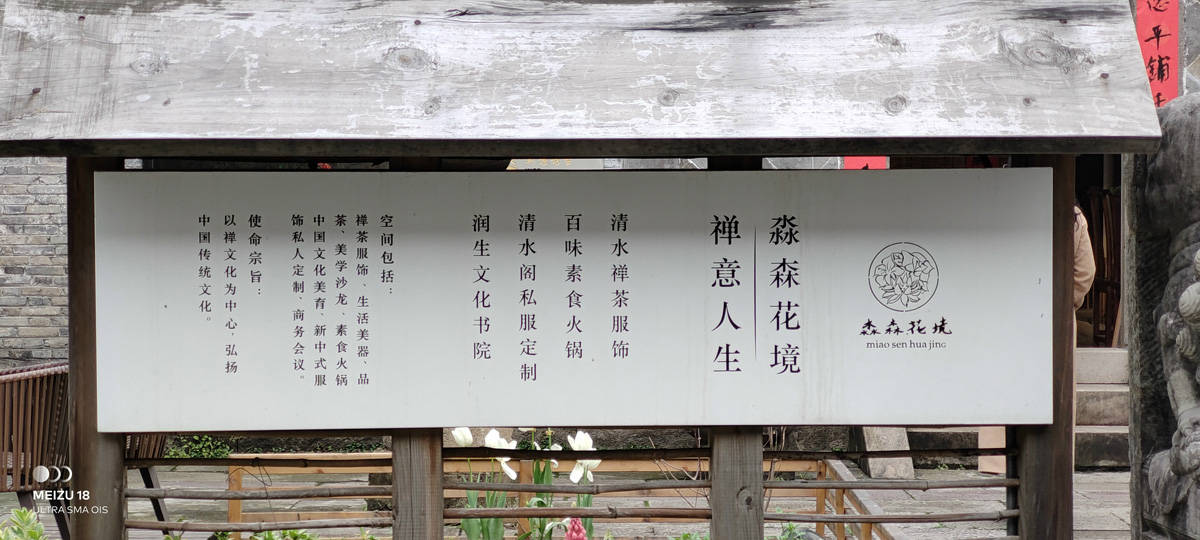 淼森花境
miao sen hua jing
淼森花境
禅意人生
清水禅茶服饰
百味素食火锅
清水阁私服定制
润生文化书院
空间包括：
禅茶服饰、生活美器、品
茶、美学沙龙、素食火锅
中国文化美育、新中式服
饰私人定制、商务会议。
使命宗旨：
以禅文化为中心，弘扬
中国传统文化。
平鋪
MEIZU 18
ULTRA SMA OIS